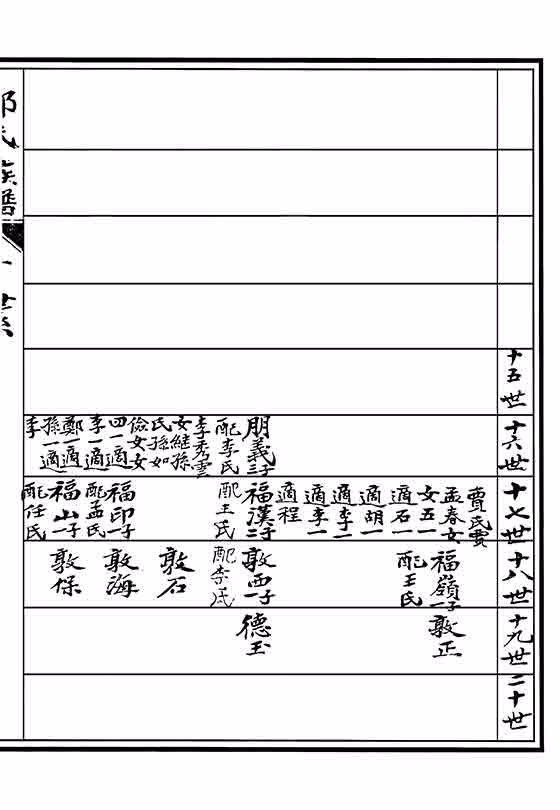 十五世
十六世
朋義三子
配李氏
李秀雲
女继孫
氏孫如
儉女女
四一適
李一適
鄭一適
孫一適
李
十七世
賈氏賈
孟春女
女五一
適石一
適胡一
適李一
適李一
適程
福漢二子
配王氏
福印一子
配孟氏
福山一子
配任氏
十八世
福嶺一子
配王氏
敦西一子
配李氏
敦石
敦海
敦保
十九世
敦正
德玉
二十世
氏族譜